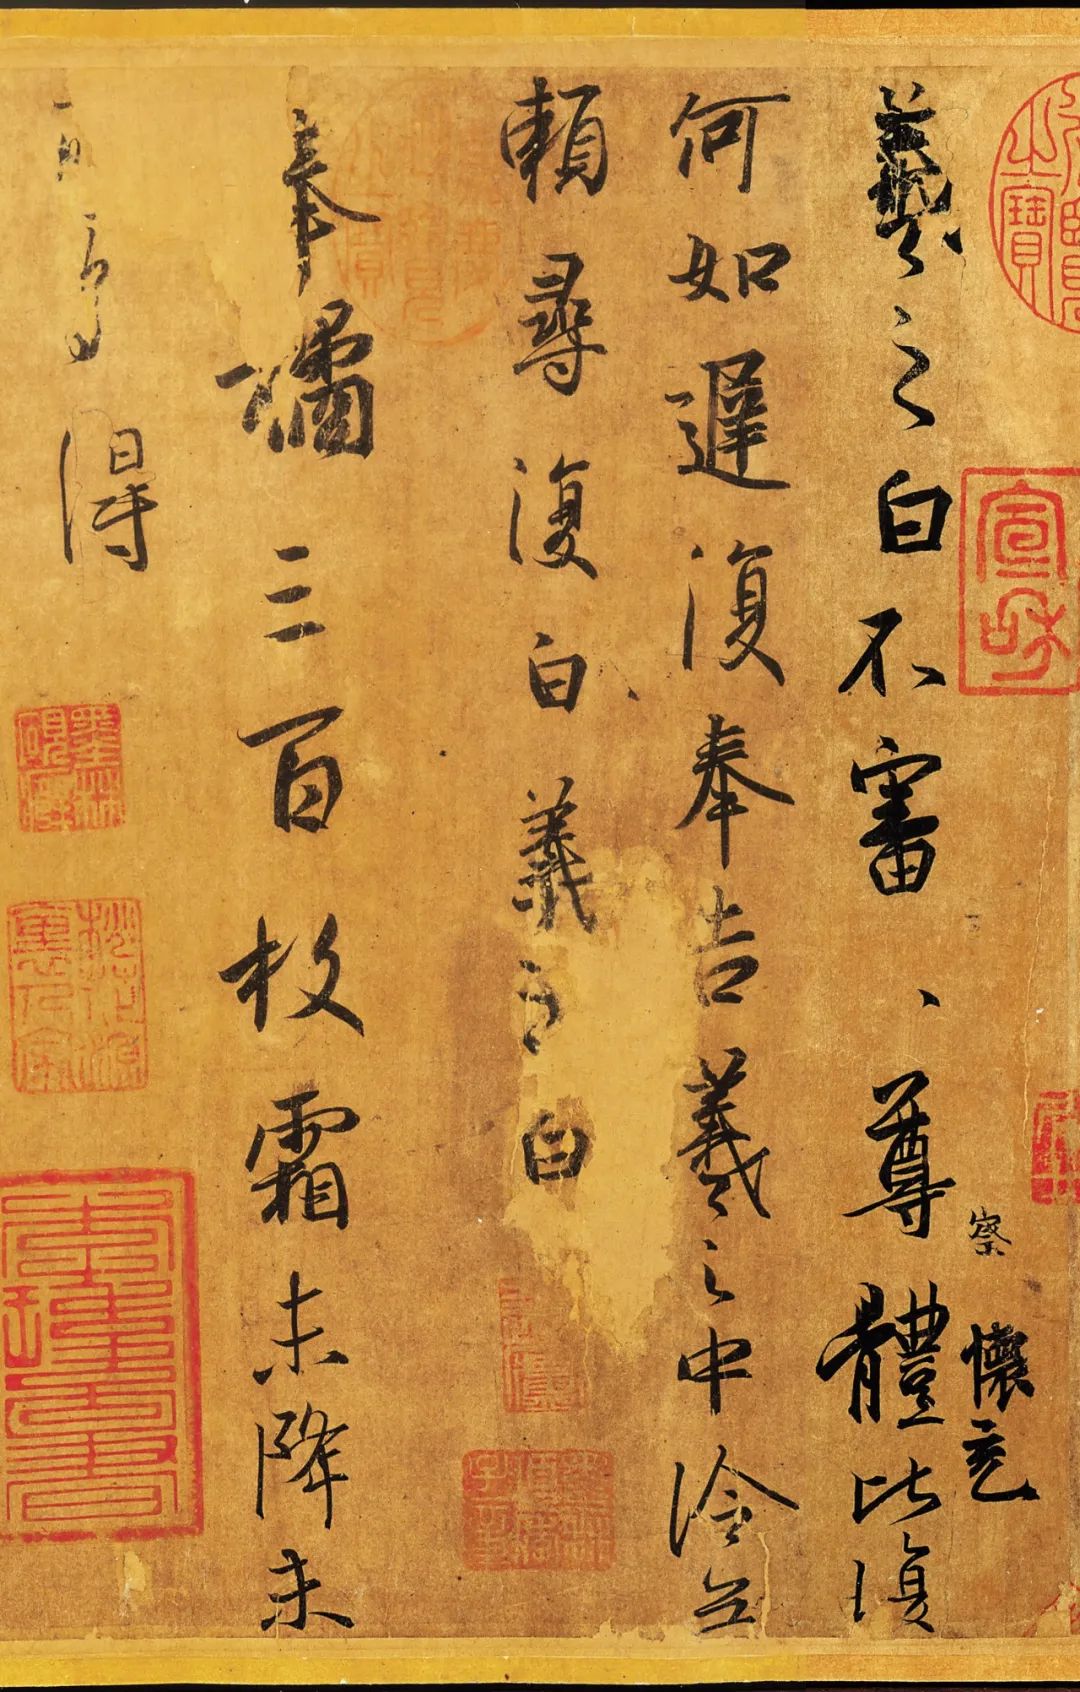 宣和
察 懷充
羲之白不審、尊體比復
何如遲復奉告羲之中冷無
賴尋復白羲之白
奉橘三百枚霜未降未
可多得
桃花源裏人家